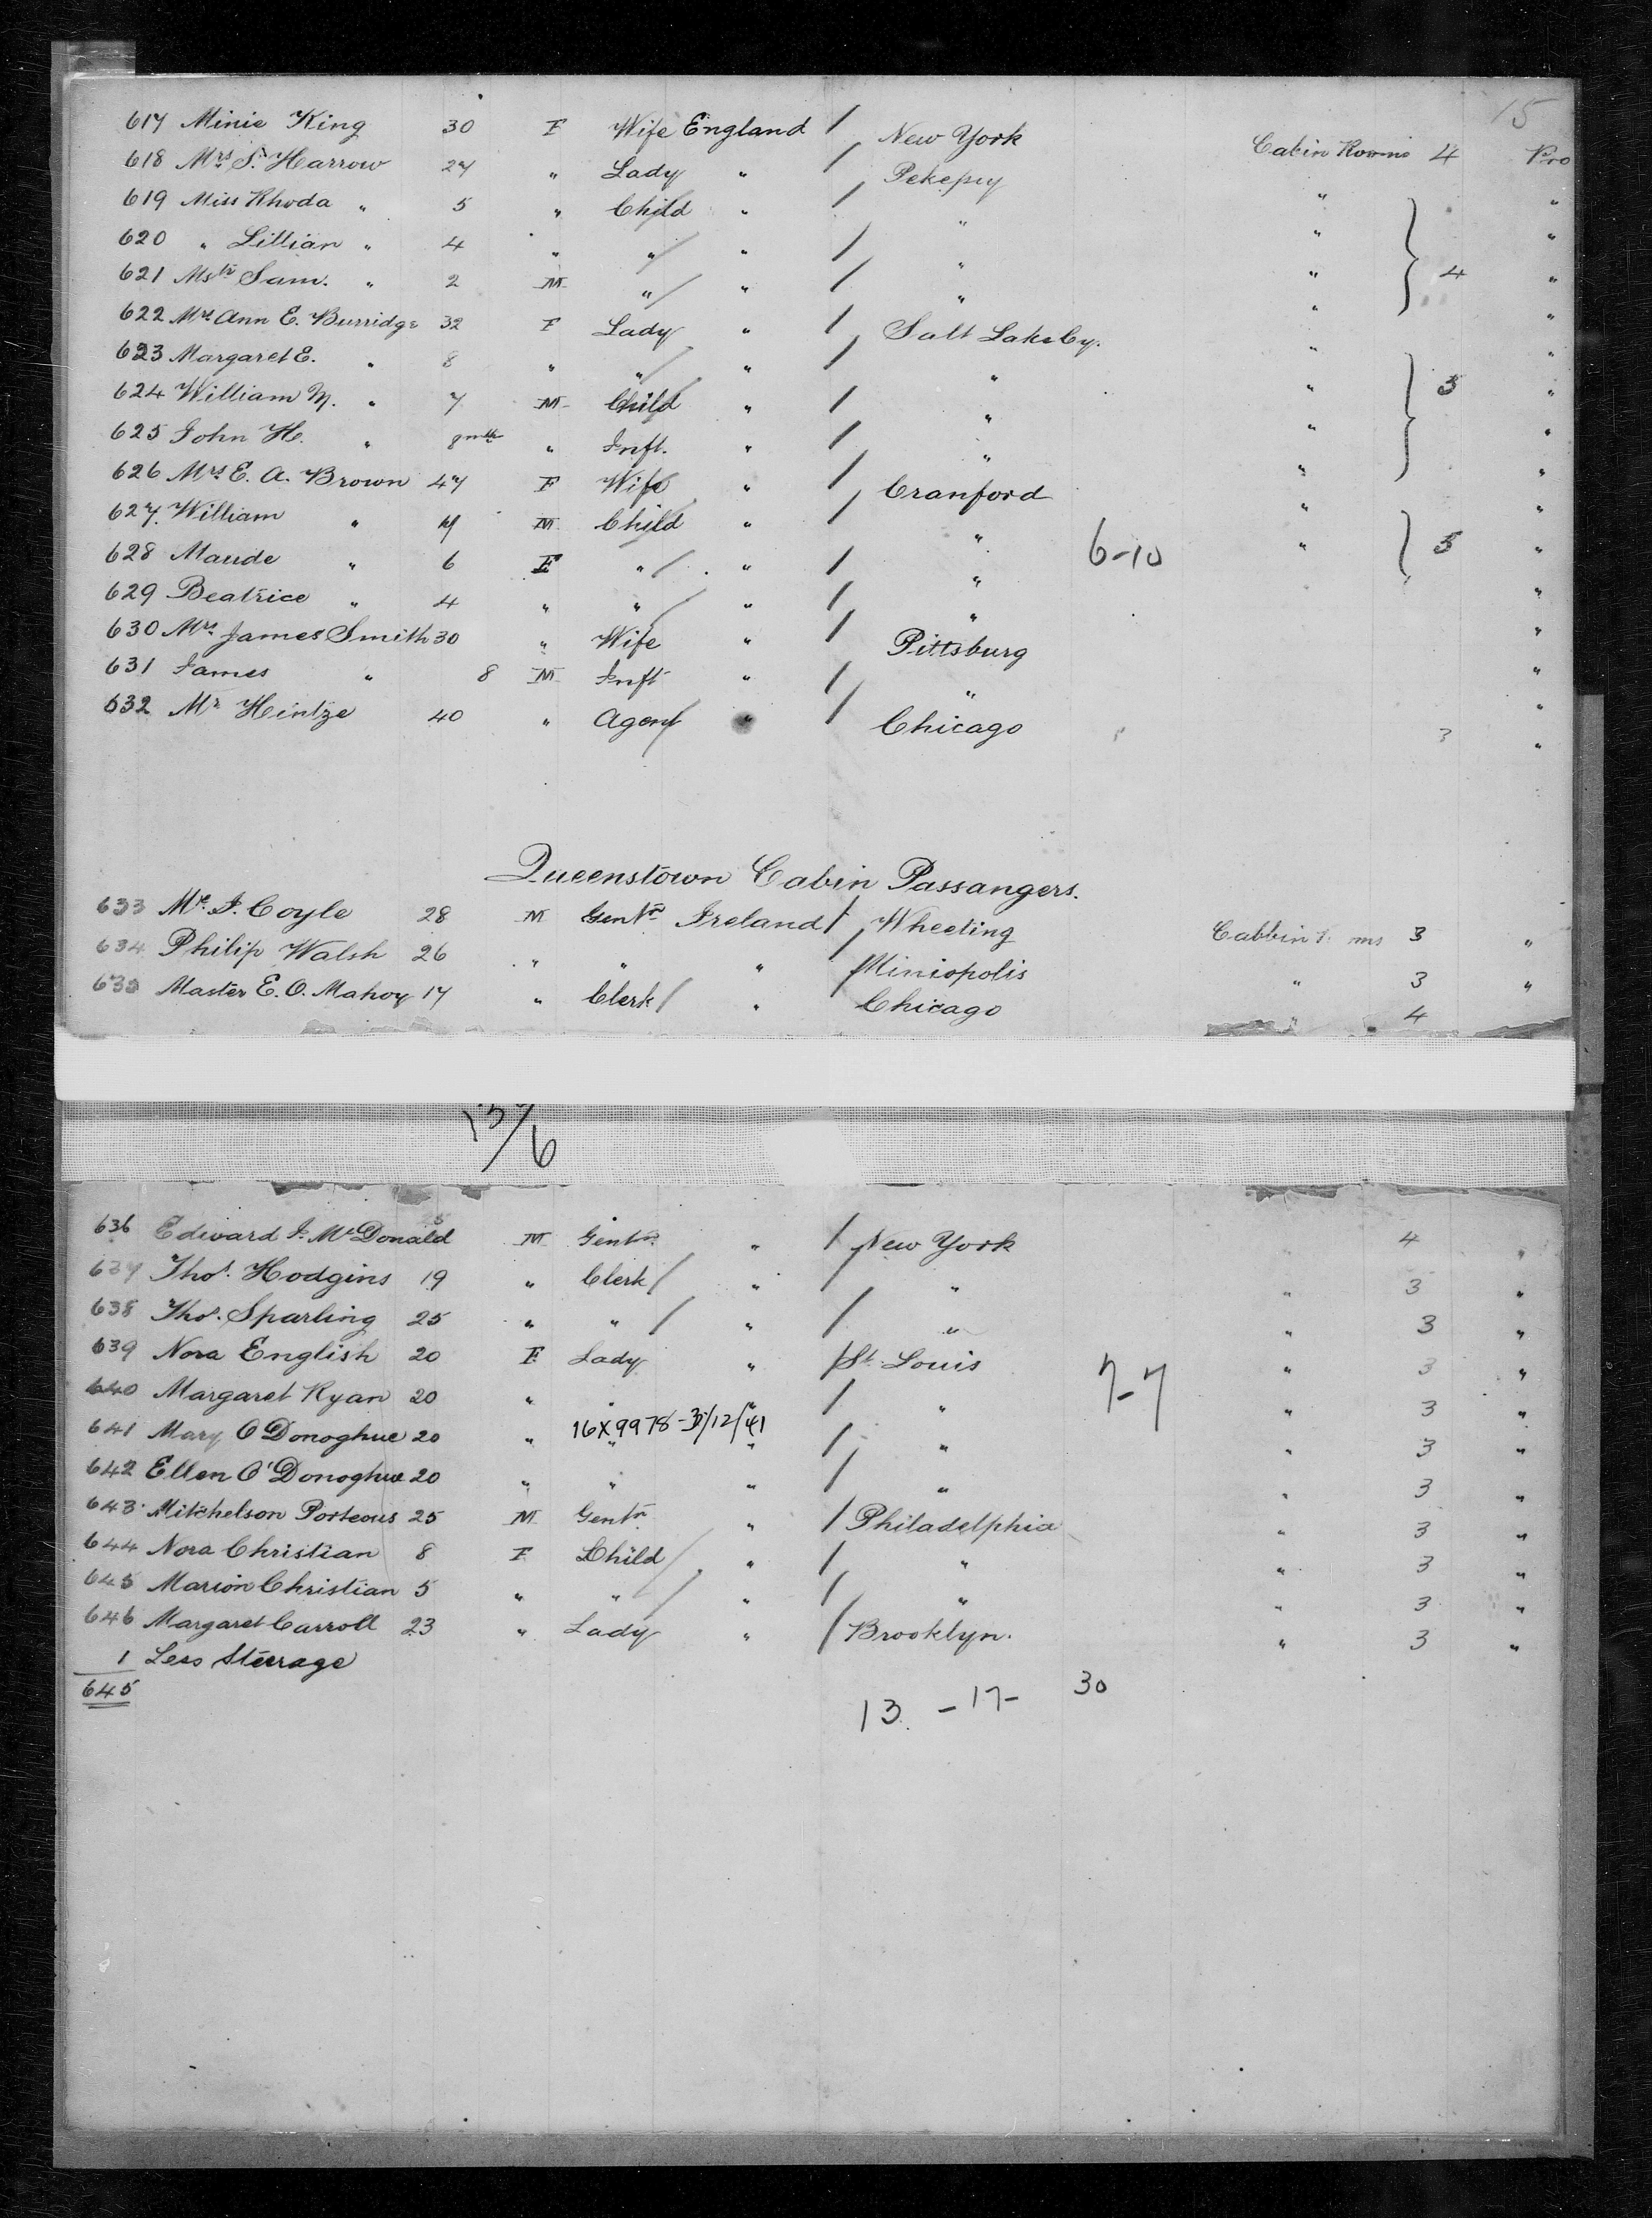 15
617 Minie King 30 F Wife England / New York Cabin Rooms 4 Pro
618 Mrs S. Harrow 27 " Lady " / Pekepsy " "
619 Miss Rhoda " 5 " Child " / " " "
620 " Lillian " 4 " " / " / " " 4 "
621 Mstr Sam. " 2 M " / " / " " "
622 Mrs Ann E. Burridge 32 F Lady " / Salt Lake Cy. " "
623 Margaret E. " 8 " " / " / " " 3 "
624 William M. " 7 M Child " / " " "
625 John H. " 8 mth " Inft. " / " " "
626 Mrs E. A. Brown 47 F Wife " / Cranford " "
627. William " M Child " / " 6-10 " 3 "
628 Maude " 6 F " / " / " "
629 Beatrice " 4 " " / " / " "
630 Mrs James Smith 30 " Wife " / Pittsburg "
631 James " 8 M Inft " / " "
632 Mr Hintze 40 " Agent " / Chicago 3 "
Queenstown Cabin Passangers.
633 Mr. J. Coyle 28 M Gentn Ireland / Wheeling Cabbin ms 3 "
634 Philip Walsh 26 " " " / Miniopolis " 3 "
635 Master E. O. Mahoy 17 " Clerk / " Chicago " 4
6
636 Edward J. McDonald M Gentn " / New York " 4 "
637 Thos. Hodgins 19 " Clerk / " / " " 3 "
638 Thos. Sparling 25 " " / " / " " 3 "
639 Nora English 20 F Lady " / St. Louis 7-7 " 3 "
640 Margaret Ryan 20 " " " / " " 3 "
16X9978-3/12/41
641 Mary O'Donoghue 20 " " " / " " 3 "
642 Ellen O'Donoghue 20 " " " / " " 3 "
643 Mitchelson Porteous 25 M Gentn " / Philadelphia " 3 "
644 Nora Christian 8 F Child / " / " " 3 "
645 Marion Christian 5 " " / " / " " 3 "
646 Margaret Carroll 23 " Lady " / Brooklyn. " 3 "
1 Less Steerage
645
13 - 17 - 30